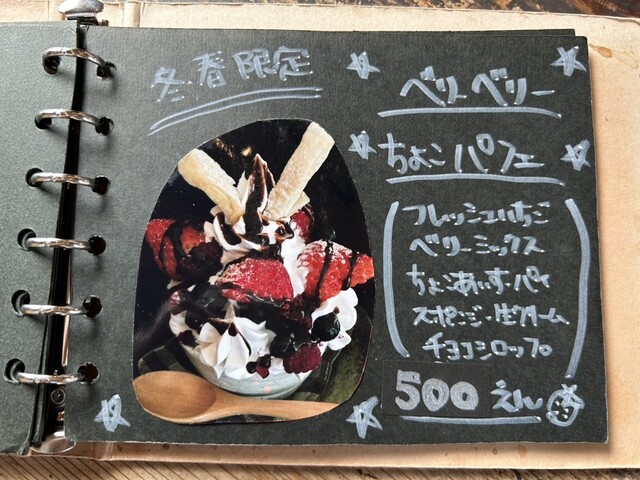 冬春限定
ベリーベリー
ちょこパフェ
フレッシュいちご
ベリーミックス
ちょこあいす・パイ
スポンジ・生クリーム
チョコシロップ
500えん